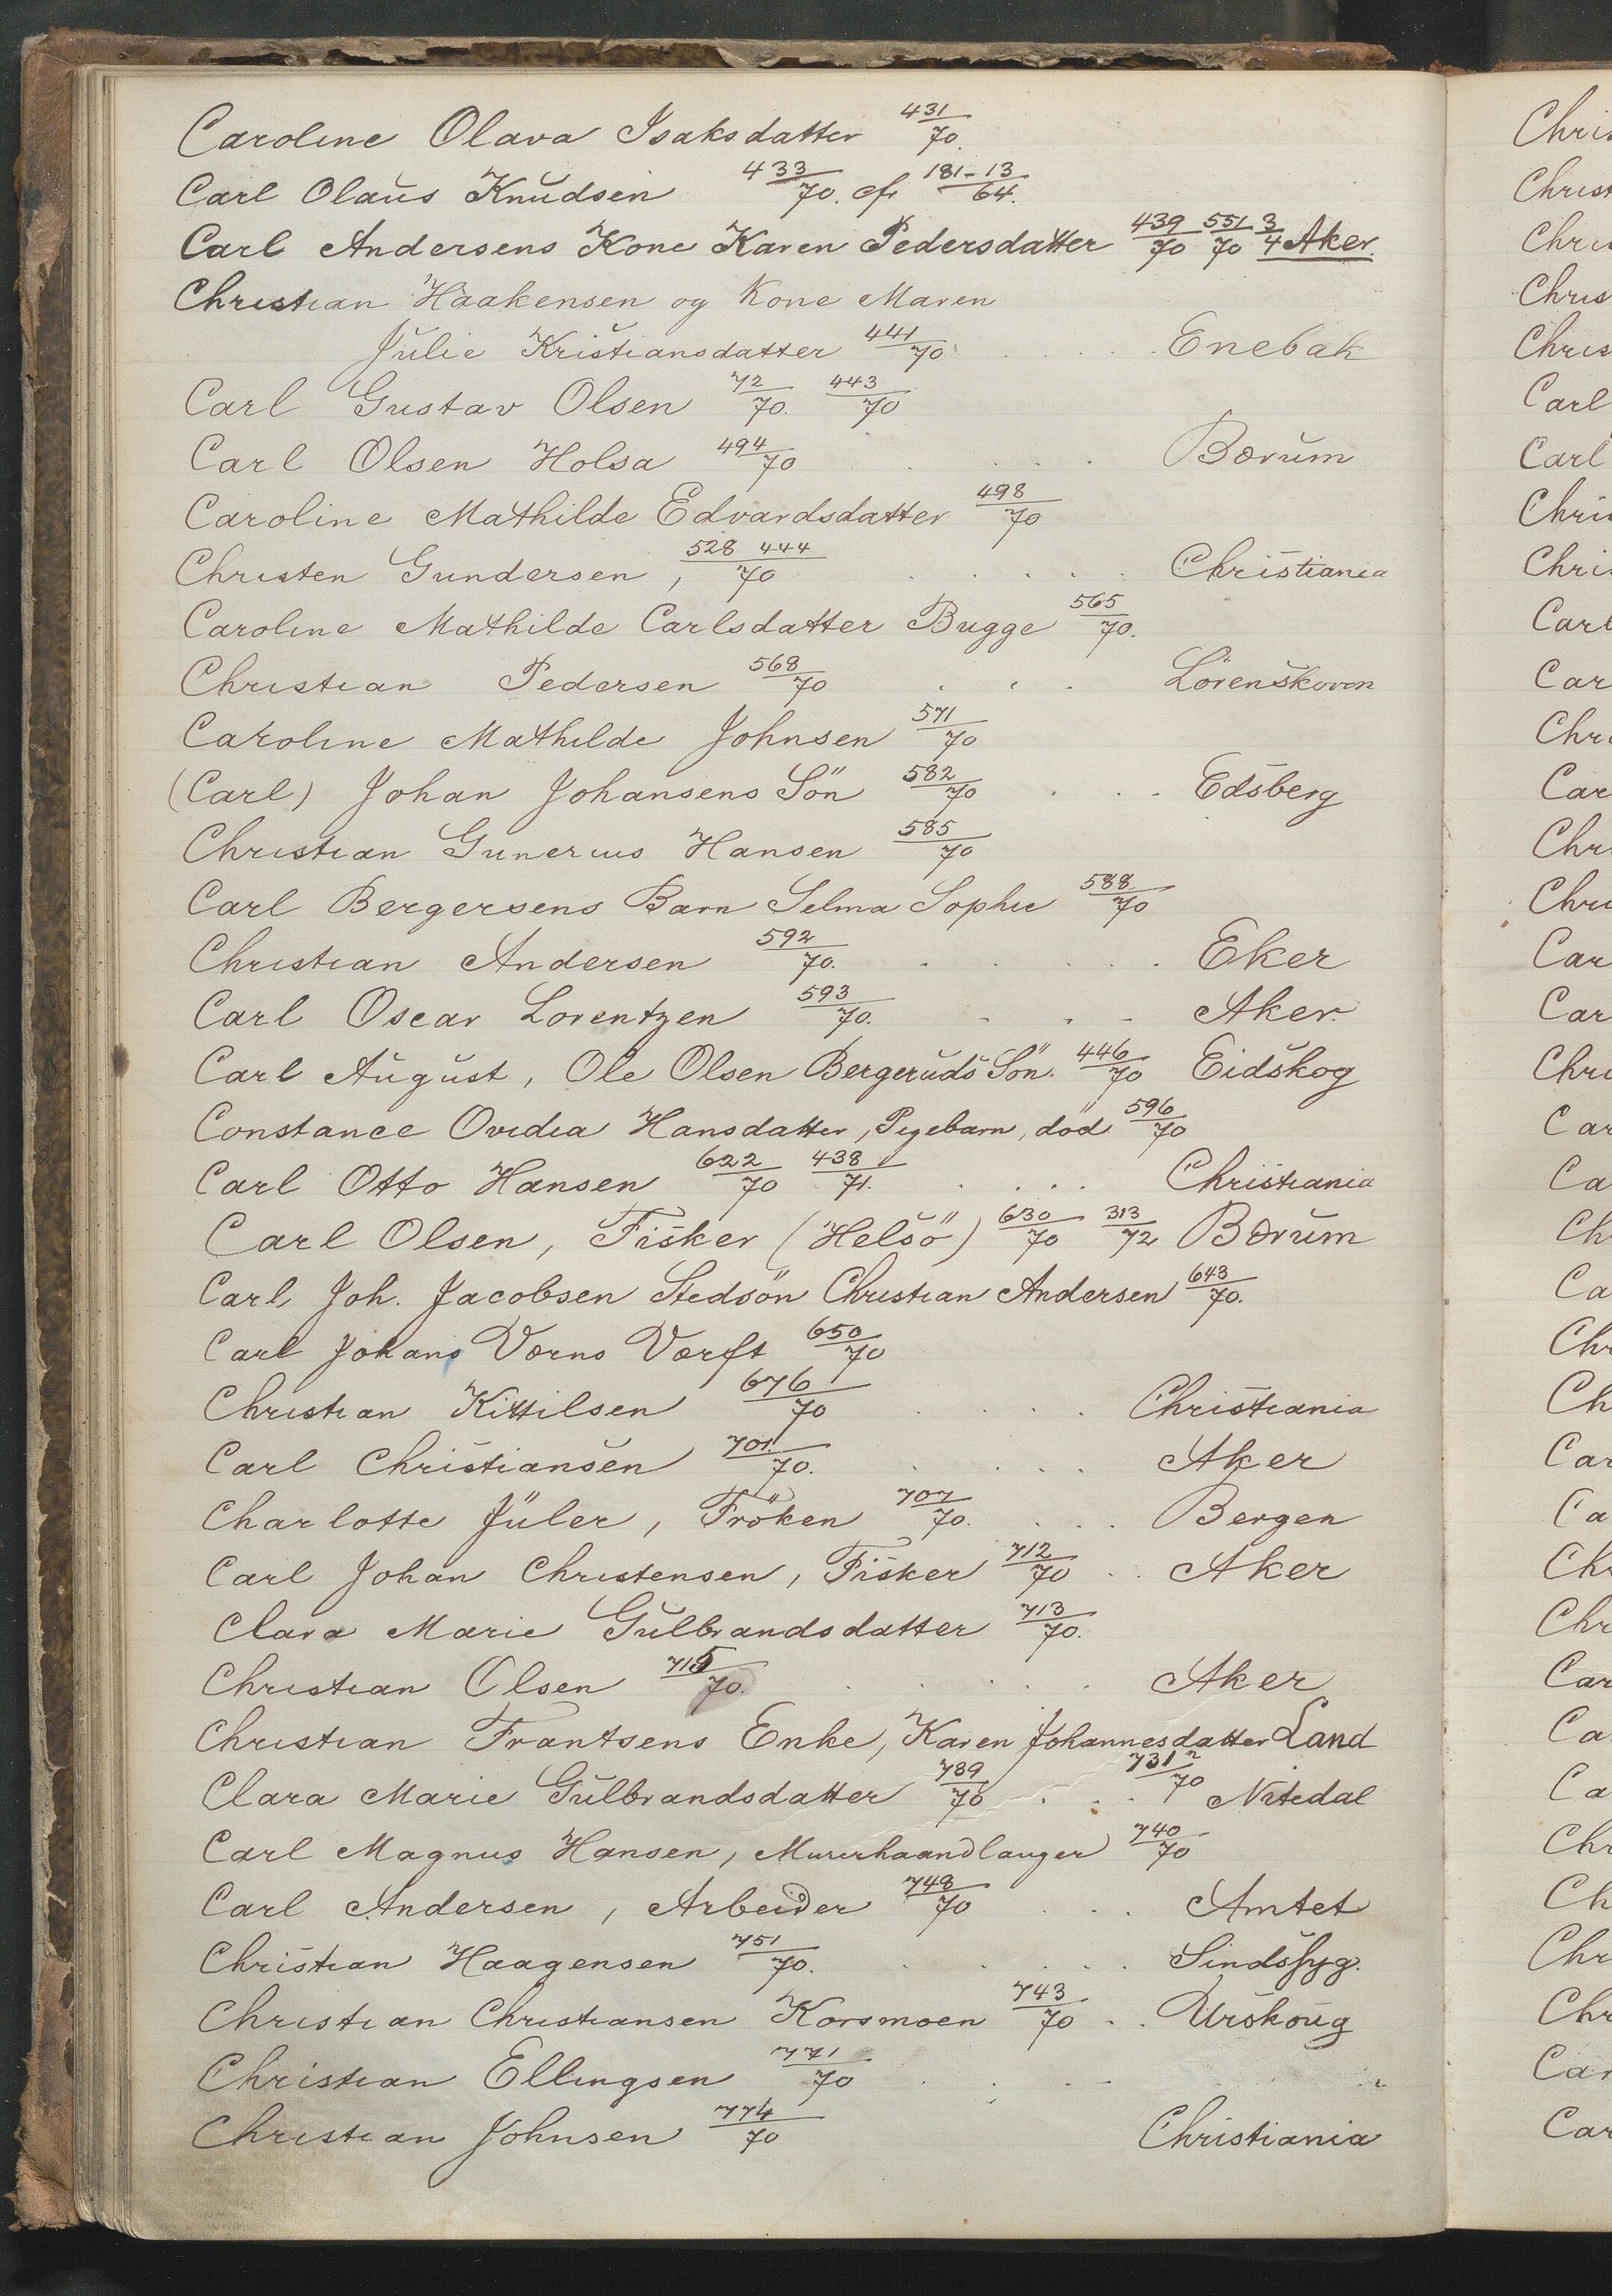 Caroline Olava Isaksdatter 431/70.
Carl Olaus Knudsen 433/70. cfr 181-13/64.
Carl Andersens Kone Karen Pedersdatter 439/70 551/70 3/4 Aker.
Christian Haakensen og Kone Maren
Julie Kristiansdatter 441/70 . . . . Enebak
Carl Gustav Olsen 72/70. 443/70
Carl Olsen Holsa 494/70 . . . . Bærum
Caroline Mathilde Edvardsdatter 498/70
Christen Gundersen, 528 444/70 . . . . . Christiania
Caroline Mathilde Carlsdatter Bugge 565/70.
Christian Pedersen 568/70 . . . Lörenskoven
Caroline Mathilde Johnsen 571/70
(Carl) Johan Johansens Sön 582/70 . . . Edsberg
Christian Gunerius Hansen 585/70
Carl Bergersens Barn Selma Sophie 588/70
Christian Andersen 592/70. . . . . . Eker
Carl Oscar Lorentzen 593/70. . . . Aker.
Carl August, Ole Olsen Bergeruds Sön. 446/70 Eidskog
Constance Ovidia Hansdatter, Pigebarn, död 596/70
Carl Otto Hansen 622/70 438/71. . . . . Christiania
Carl Olsen, Fisker (Helsö) 630/70 313/72 Bærum
Carl Joh. Jacobsen Stedsön Christian Andersen 643/70.
Carl Johans Værns Værft 650/70
Christian Kittilsen 676/70 . . . . Christiania
Carl Christiansen 701./70. . . . . Aker
Charlotte Juler, Fröken 707/70. . . . Bergen
Carl Johan Christensen, Fisker 712/70 . . Aker
Clara Marie Gulbrandsdatter 713/70.
Christian Olsen 715/70. . . . . . Aker
Christian Frantsens Enke, Karen Johannesdatter Land
731/70
Clara Marie Gulbrandsdatter 789/70 . . . Nitedal
Carl Magnus Hansen, Murerhaandlanger 740/70
Carl Andersen, Arbeider 748/70 . . . Amtet
Christian Haagensen 751/70. . . . . . Sindssyg.
Christian Christiansen Korsmoen 743/70 . . Urskoug
Christian Ellingsen 771/70 . . .
Christian Johnsen 774/70 Christiania
Chris
Christ
Chri
Chris
Chris
Carl
Carl
Chris
Chris
Carl
Car
Chri
Car
Chr
Chri
Car
Car
Chri
Car
Ca
Ch
Ca
Chr
Ch
Car
Ca
Chr
Chr
Car
Ca
Ca
Chr
Ch
Chr
Chr
Car
Car